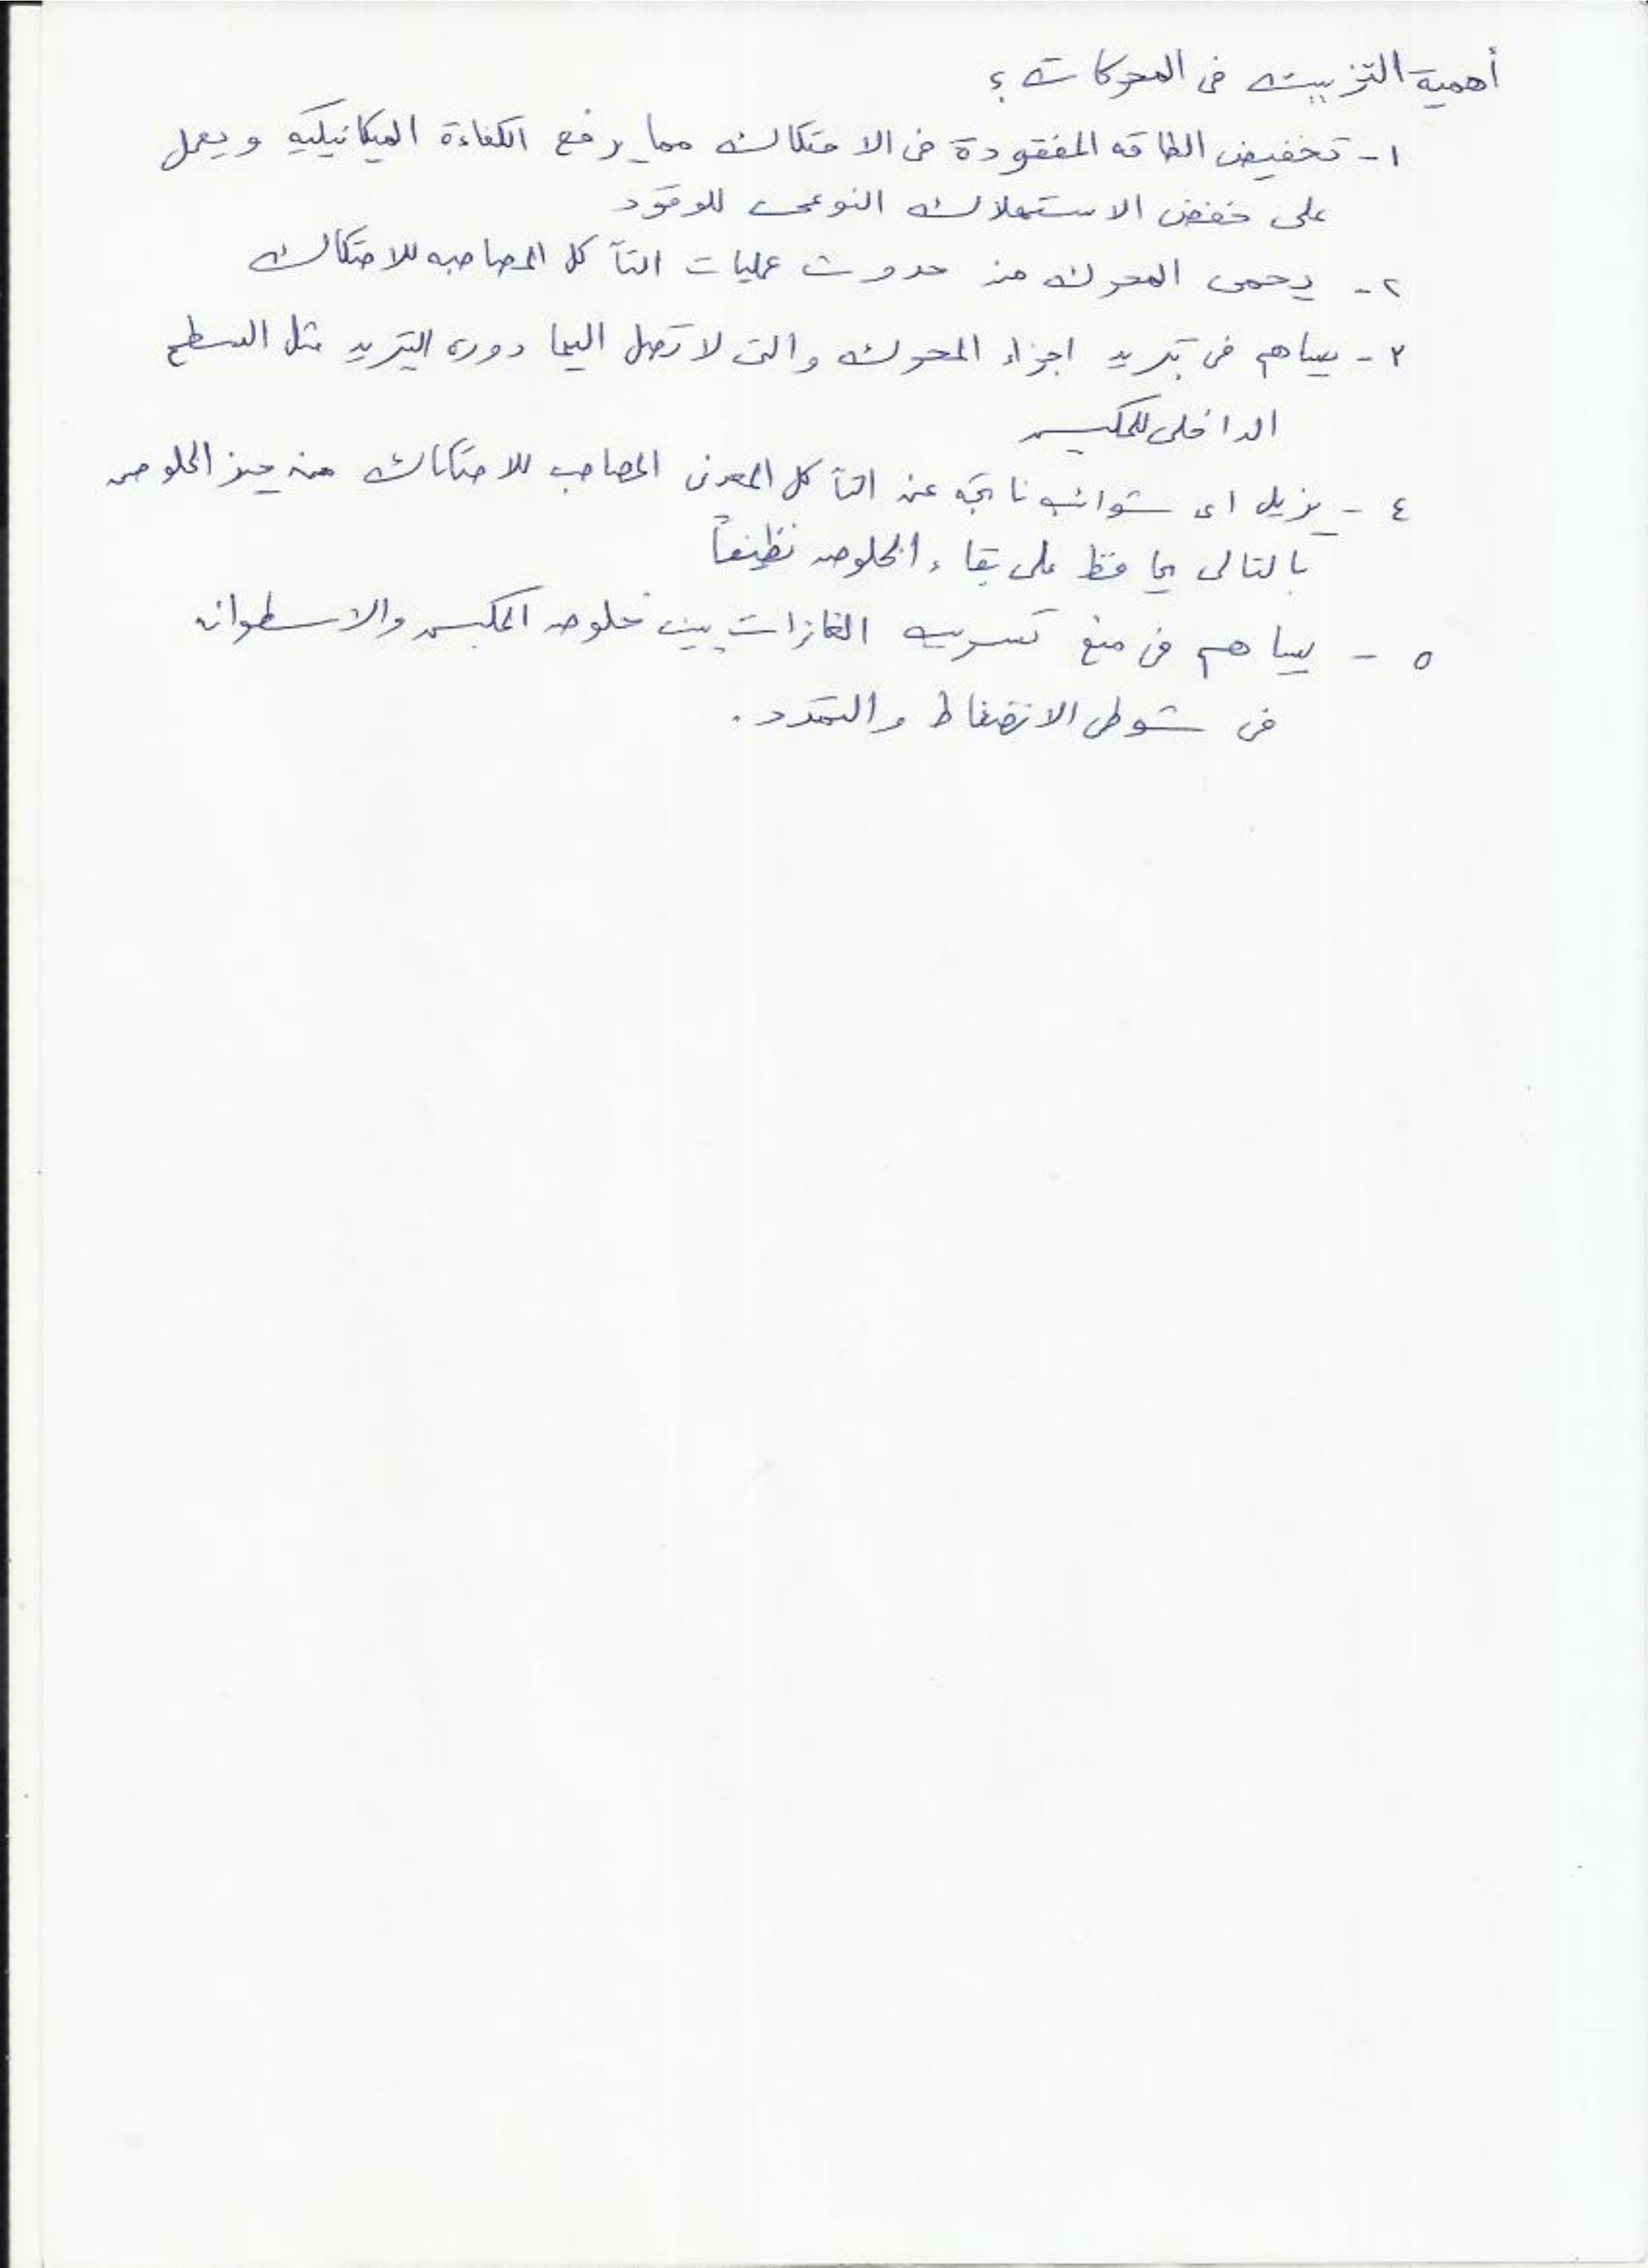 أهمية التزييت فى المحركات ؟
١- تخفيض الطاقه المفقودة فى الاحتكاك مما يرفع الكفاءة الميكانيكيه ويعمل
على خفض الاستهلاك النوعى للوقود
٢- يحمى المحرك من حدوث عمليات التآكل المصاحبه للاحتكاك
٣- يساهم فى تبريد اجزاء المحرك والتى لا تصل اليها دوره التبريد مثل السطح
الداخلى للمكبس
٤- يزيل اى شوائب ناتجه عن التآكل المعدنى المصاحب للاحتكاك من حيز الخلوص
بالتالى يحافظ على بقاء الخلوص نظيفاً
٥- يساهم فى منع تسريب الغازات بين خلوص المكبس والاسطوانه
فى شوطى الانضغاط والتمدد .